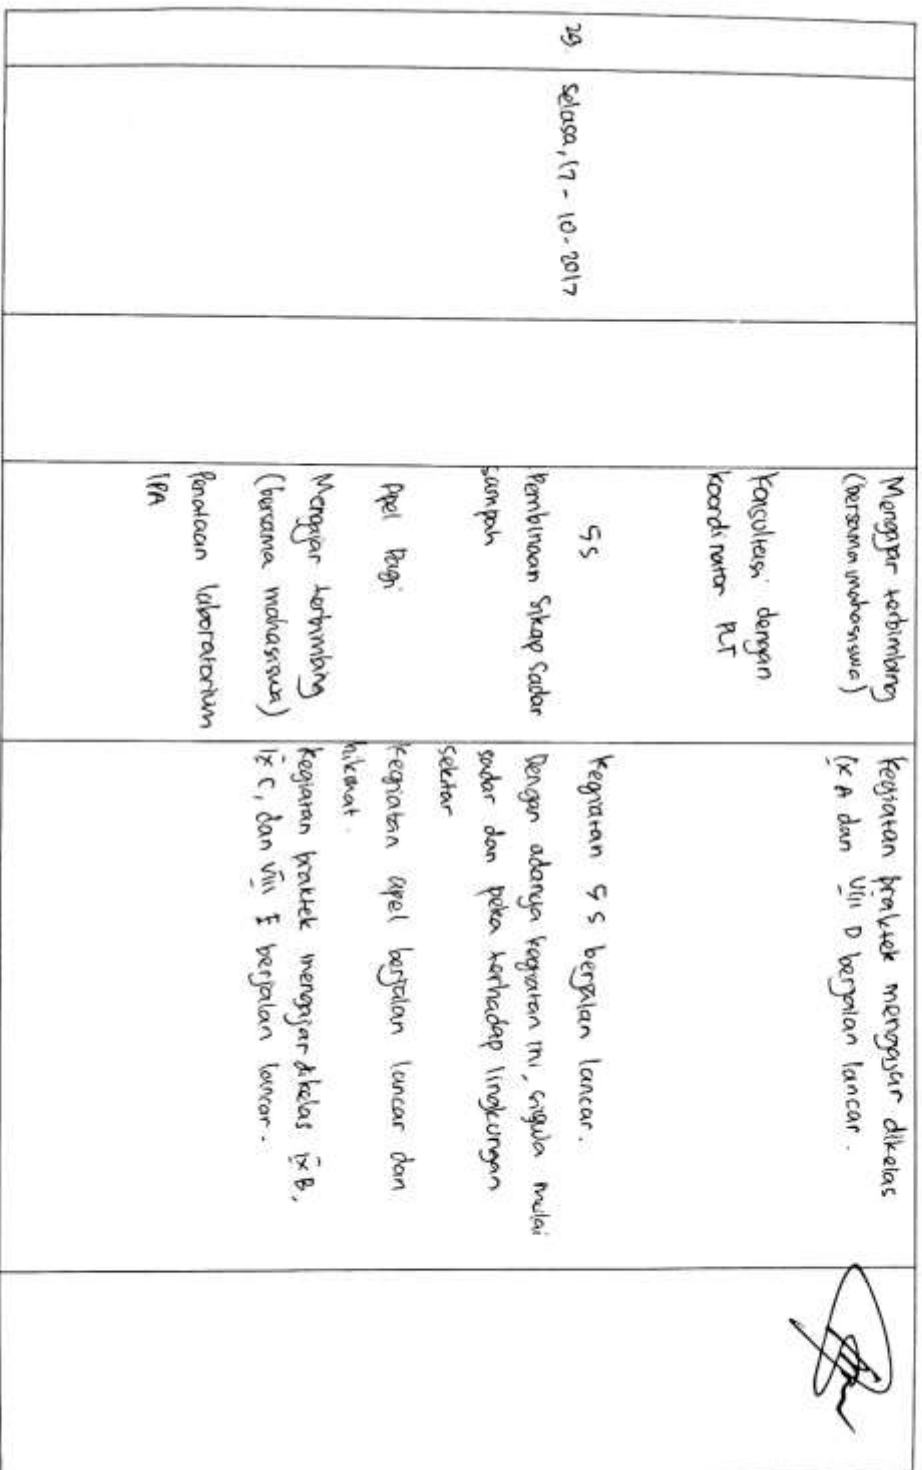 Mengajar terbimbing
(bersama mahasiswa)
Kegiatan praktek mengajar dikelas
IX A dan VIII D berjalan lancar.
Konsultasi dengan
koordinator PLT
29.
Selasa, 17 - 10 - 2017
5S
Kegiatan 5S berjalan lancar.
Pembinaan Sikap Sadar
sampah
Dengan adanya kegiatan ini, siswa mulai
sadar dan peka terhadap lingkungan
sekitar
Apel Pagi
Kegiatan apel berjalan lancar dan
hikmat.
Mengajar terbimbing
(bersama mahasiswa)
Kegiatan praktek mengajar dikelas IX B,
IX C, dan VIII E berjalan lancar.
Penataan laboratorium
IPA